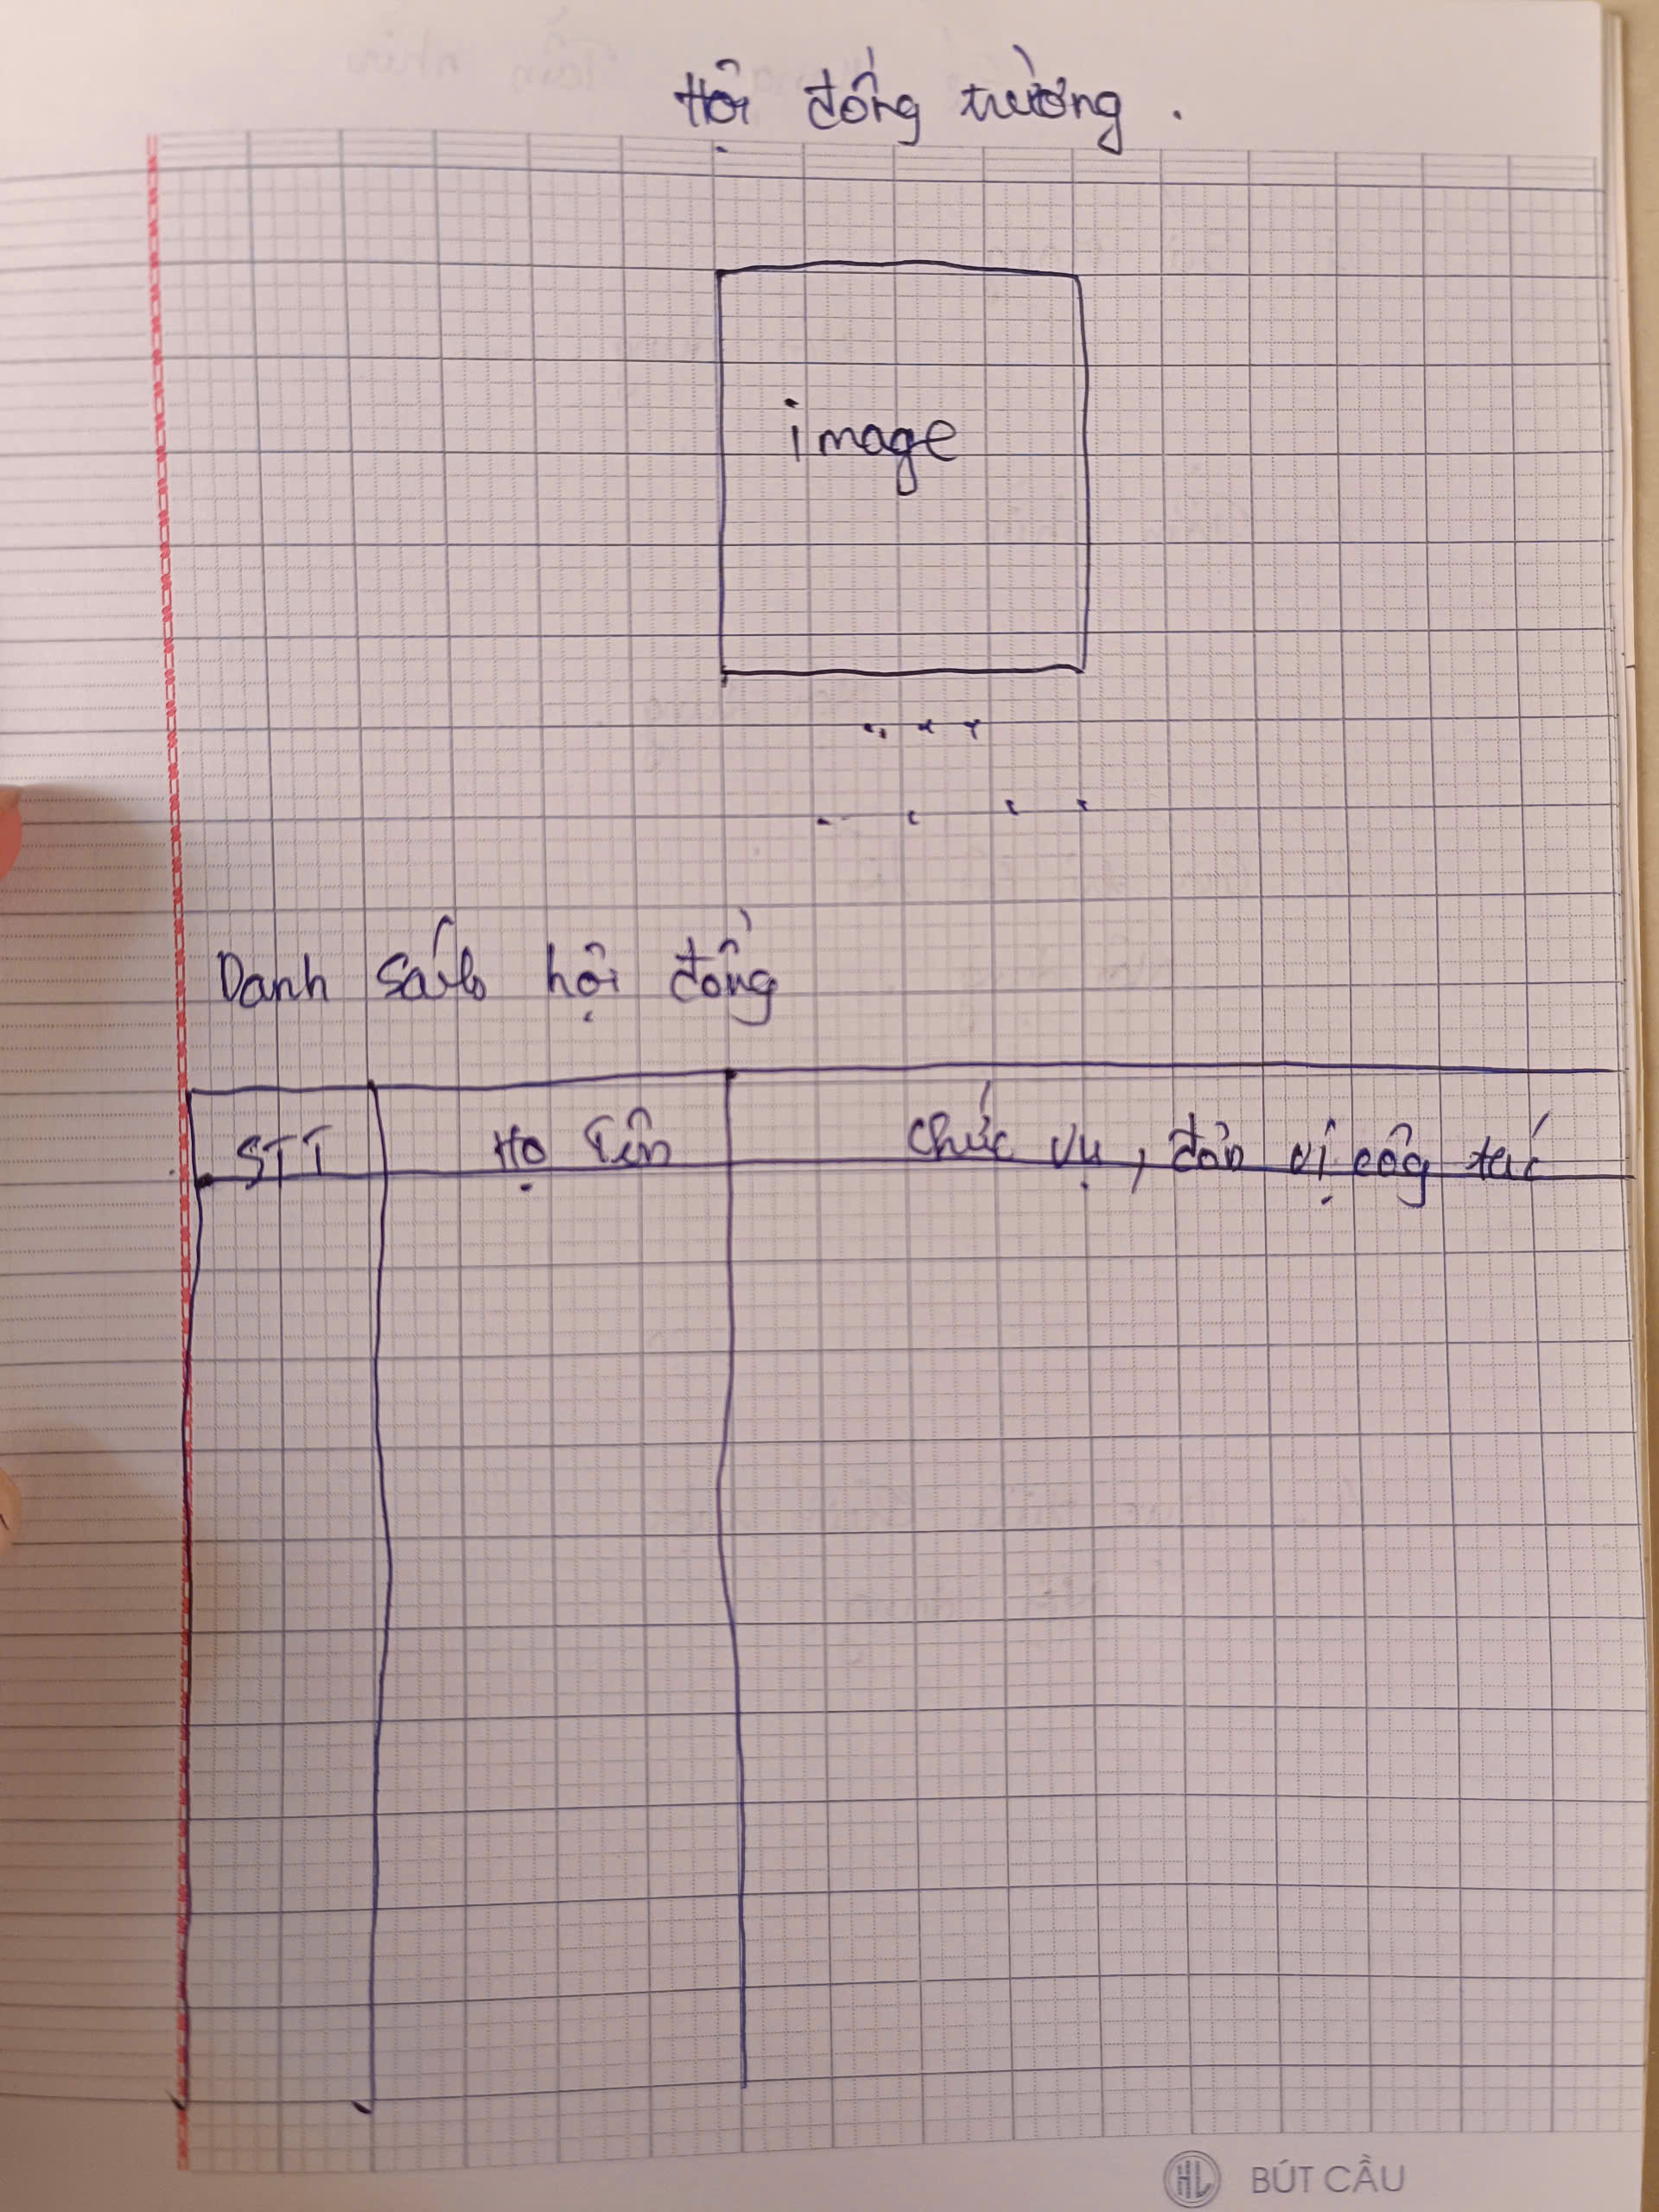 Hội đồng trường.
image
.. . .
. . . .
Danh sách hội đồng
STT Họ tên Chức vụ, đơn vị công tác
HL BÚT CẦU